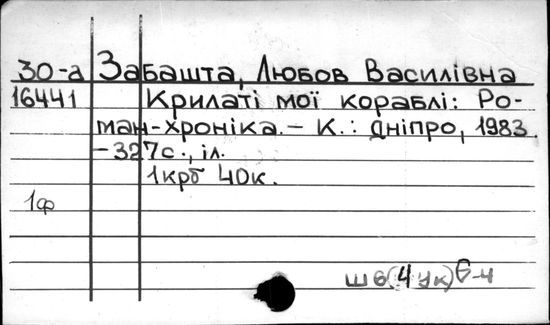 30-а Забашта, Любов Василівна
16441 Крилаті мої кораблі: Ро-
ман-хроніка. – К.: Дніпро, 1983.
– 327с., іл.
1крб 40к.
1ф
Ш6(4Ук)6-4